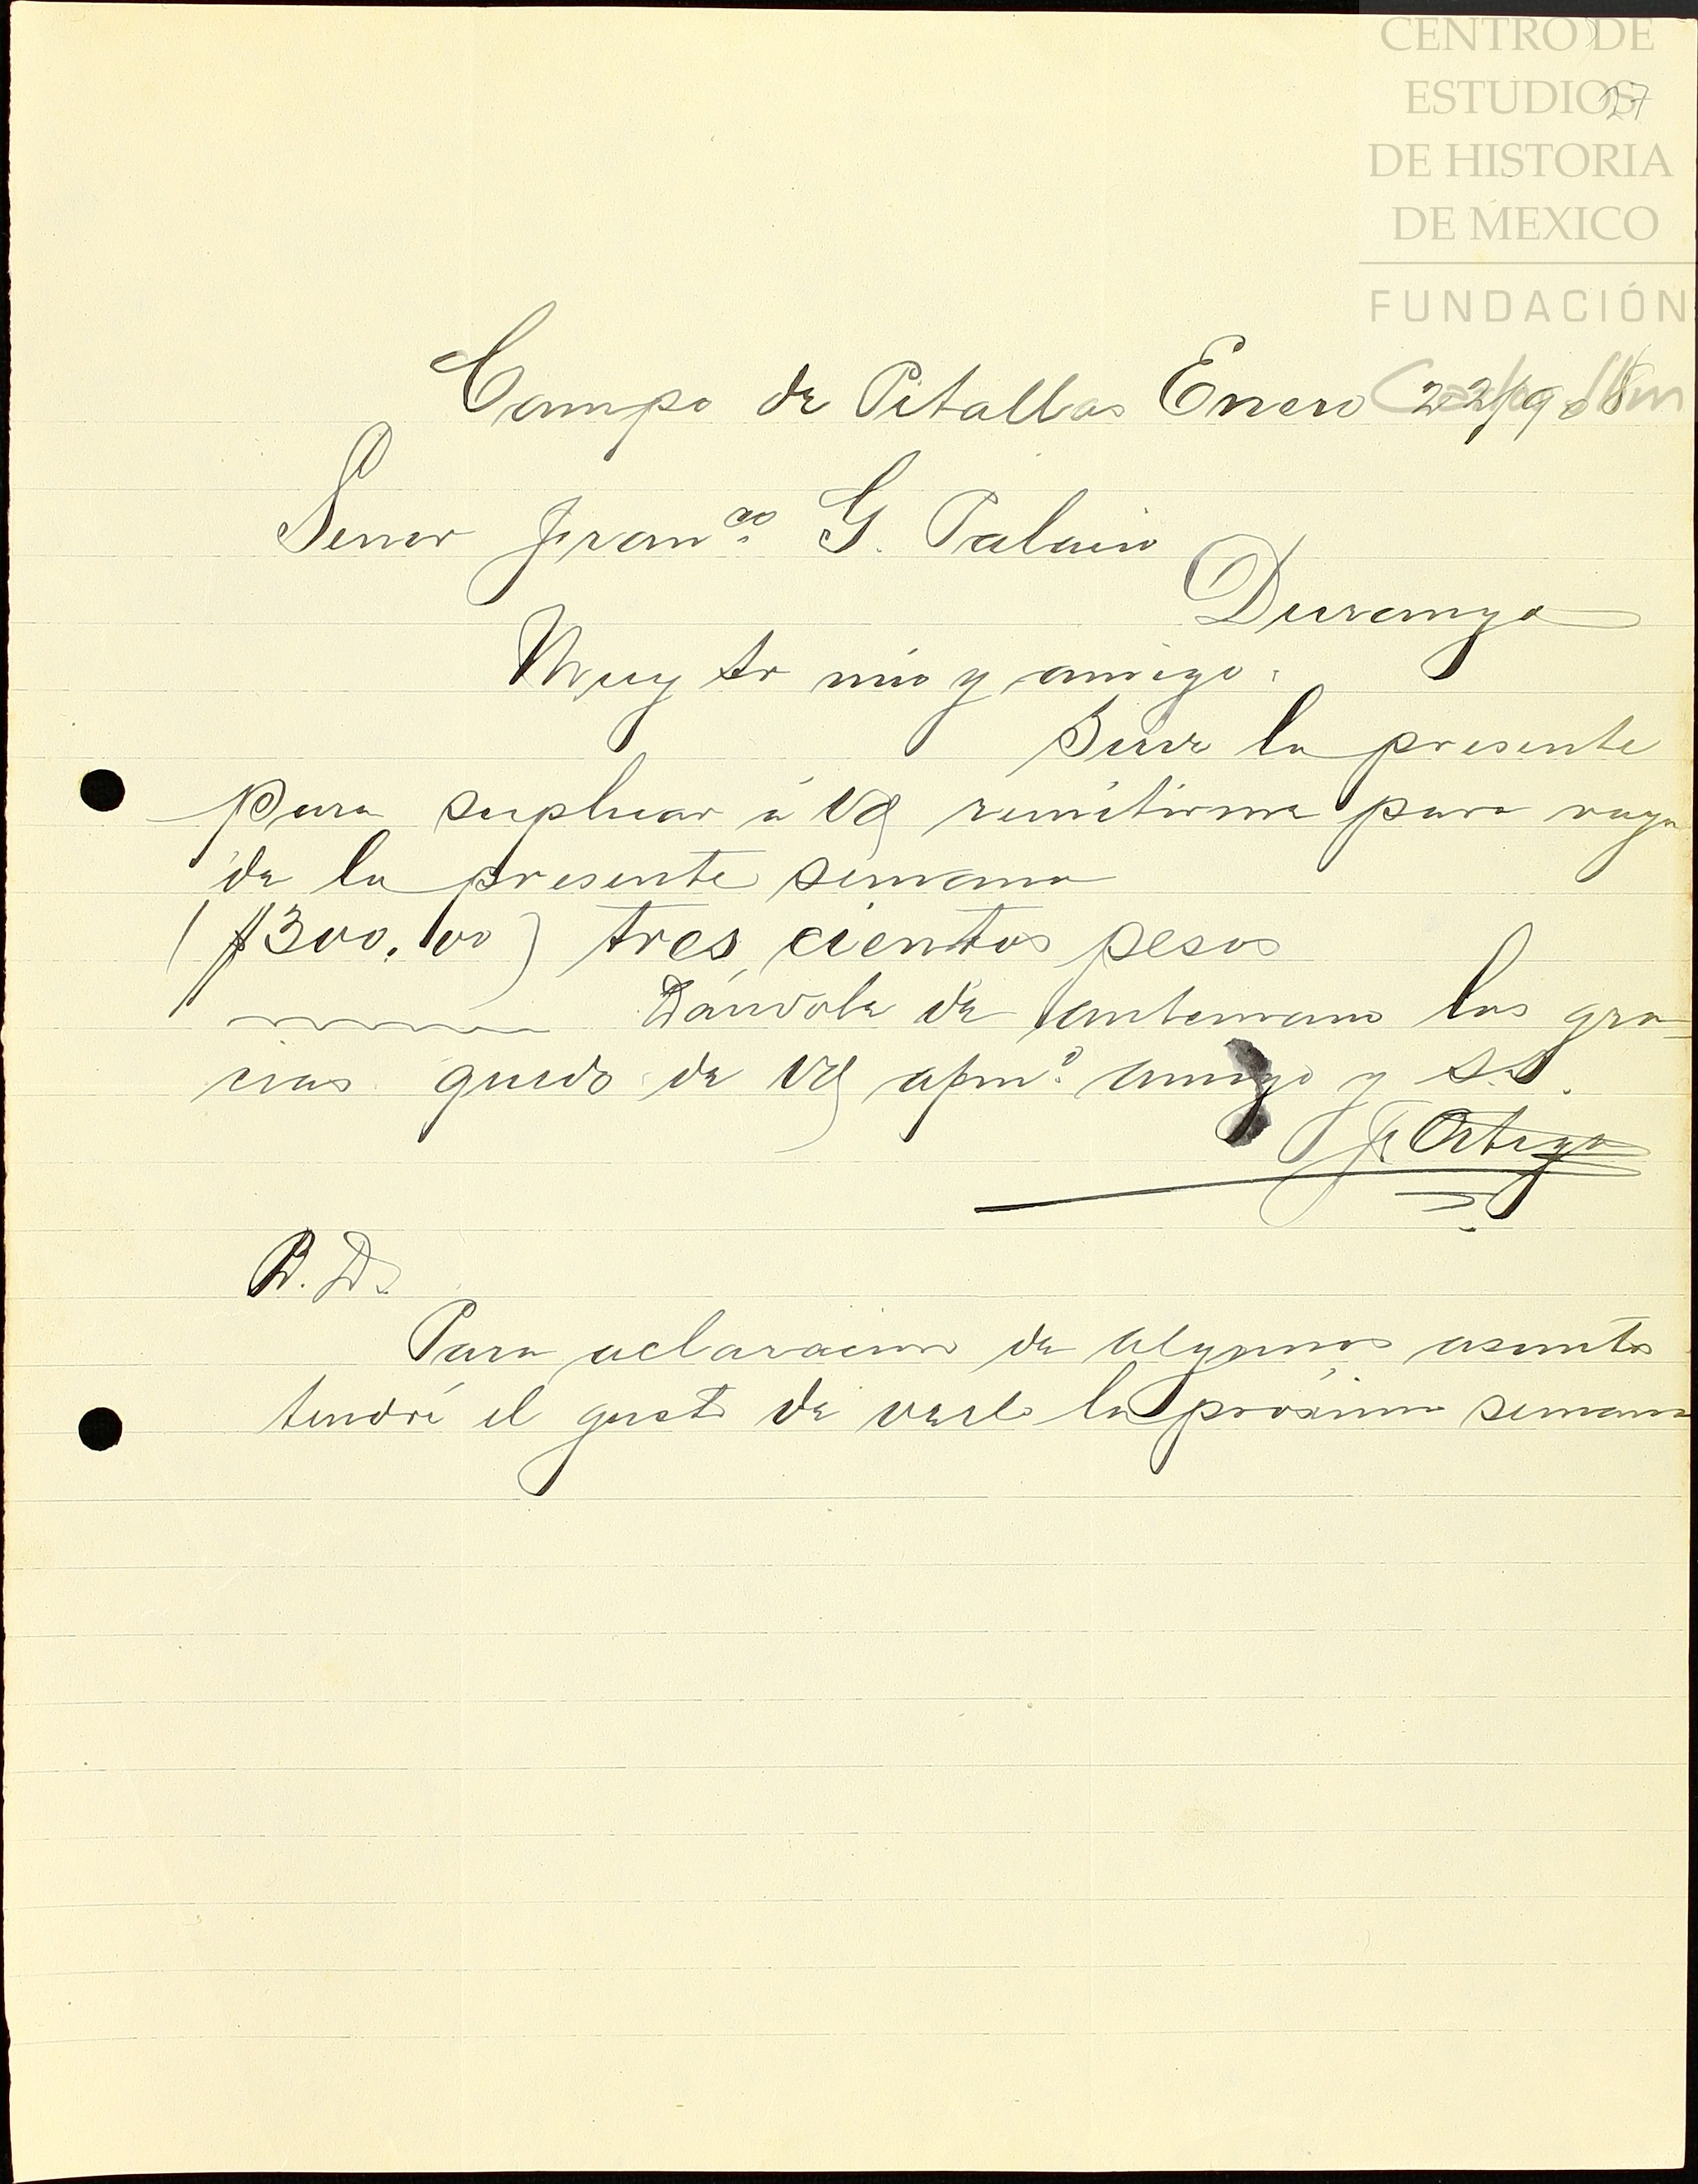 CENTRO DE
ESTUDIOS
DE HISTORIA
DE MEXICO
FUNDACIÓN
27
Campo de Pitallas Enero 22/908
Señor Fran.co G. Palacio
Durango
Muy Sr mio y amigo.
Sirve la presente
para suplicar á Vd remitirme para raya
de la presente semana
($300.00) tres cientos pesos
Dándole de antemano las gra-
cias quedo de Vd afmo. amigo y S.S.
F. Ortega
P. D.
Para aclaracion de algunos asuntos
tendré el gusto de verlo la próxima semana